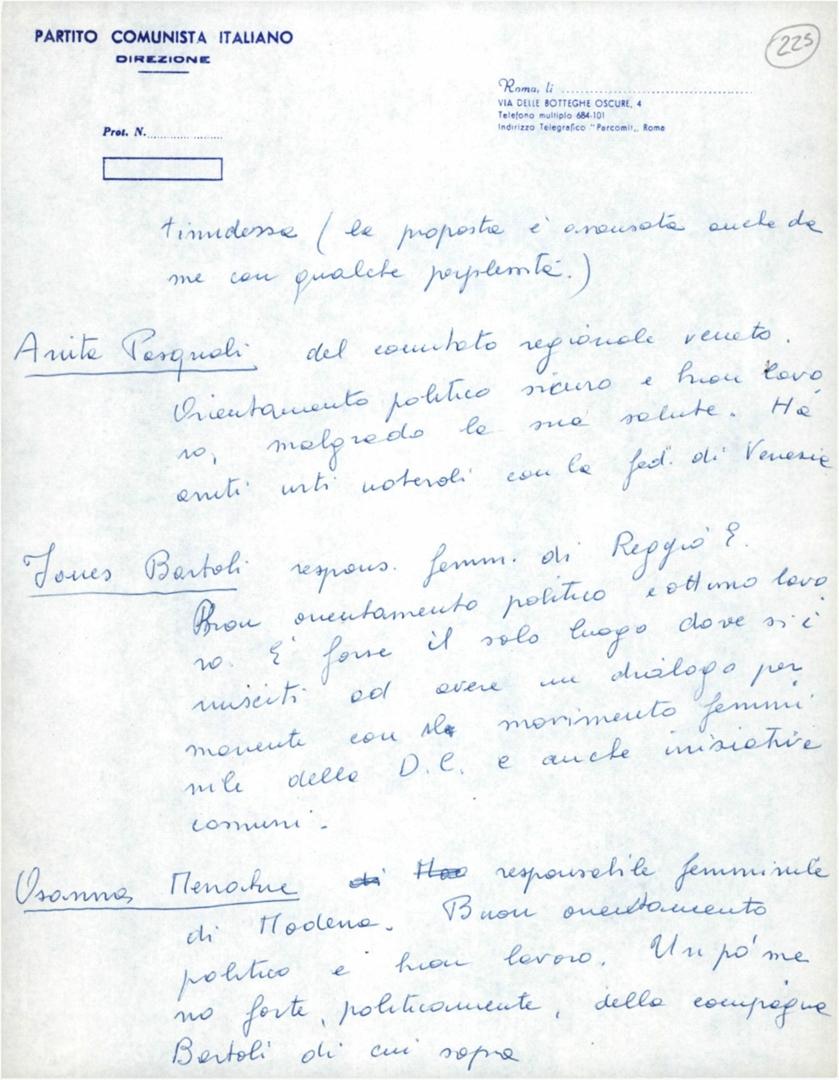 PARTITO COMUNISTA ITALIANO
DIREZIONE
225
Roma, li
VIA DELLE BOTTEGHE OSCURE, 4
Telefono multiplo 684-101
Indirizzo Telegrafico "Parcomit„ Roma
Prot. N.
timidezza (la proposta è avanzata anche da
me con qualche perplessità.)
Anita Pasquali del comitato regionale veneto.
Orientamento politico sicuro e buon lavo
ro, malgrado la sua salute. Ha
avuti urti notevoli con la fed. di Venezia
Jones Bartoli respons. femm. di Reggio E.
Buon orientamento politico e ottimo lavo
ro. E' forse il solo luogo dove si è
riusciti ad avere un dialogo per
manente con il movimento femmi
nile della D.C. e anche iniziative
comuni.
Osanna Menabue di responsabile femminile
di Modena. Buon orientamento
politico e buon lavoro. Un po' me
no forte, politicamente, della compagna
Bartoli di cui sopra